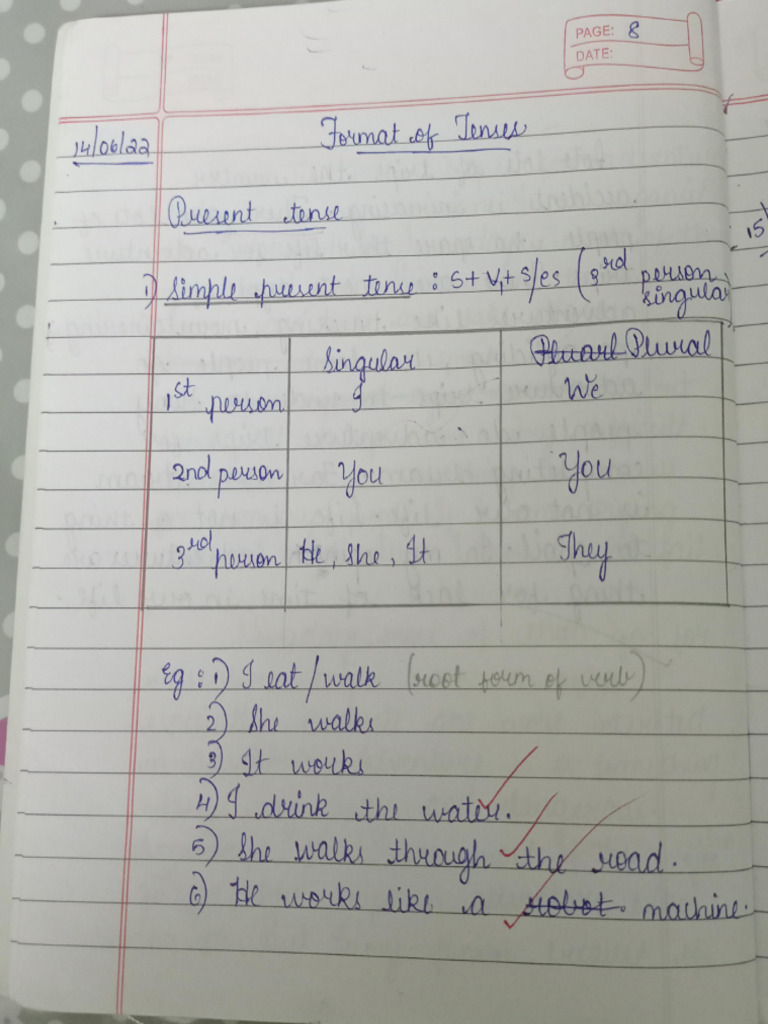 PAGE: 8
DATE:
14/06/22 Format of Tenses
Present tense
1) Simple present tense : S + V1 + s/es (3rd person
singular
Singular Pluarl Plural
1st person I We
2nd person You You
3rd person He, She, It They
Eg : 1) I eat / walk (root form of verb)
2) She walks
3) It works
4) I drink the water.
5) She walks through the road.
6) He works like a robot. machine.
15